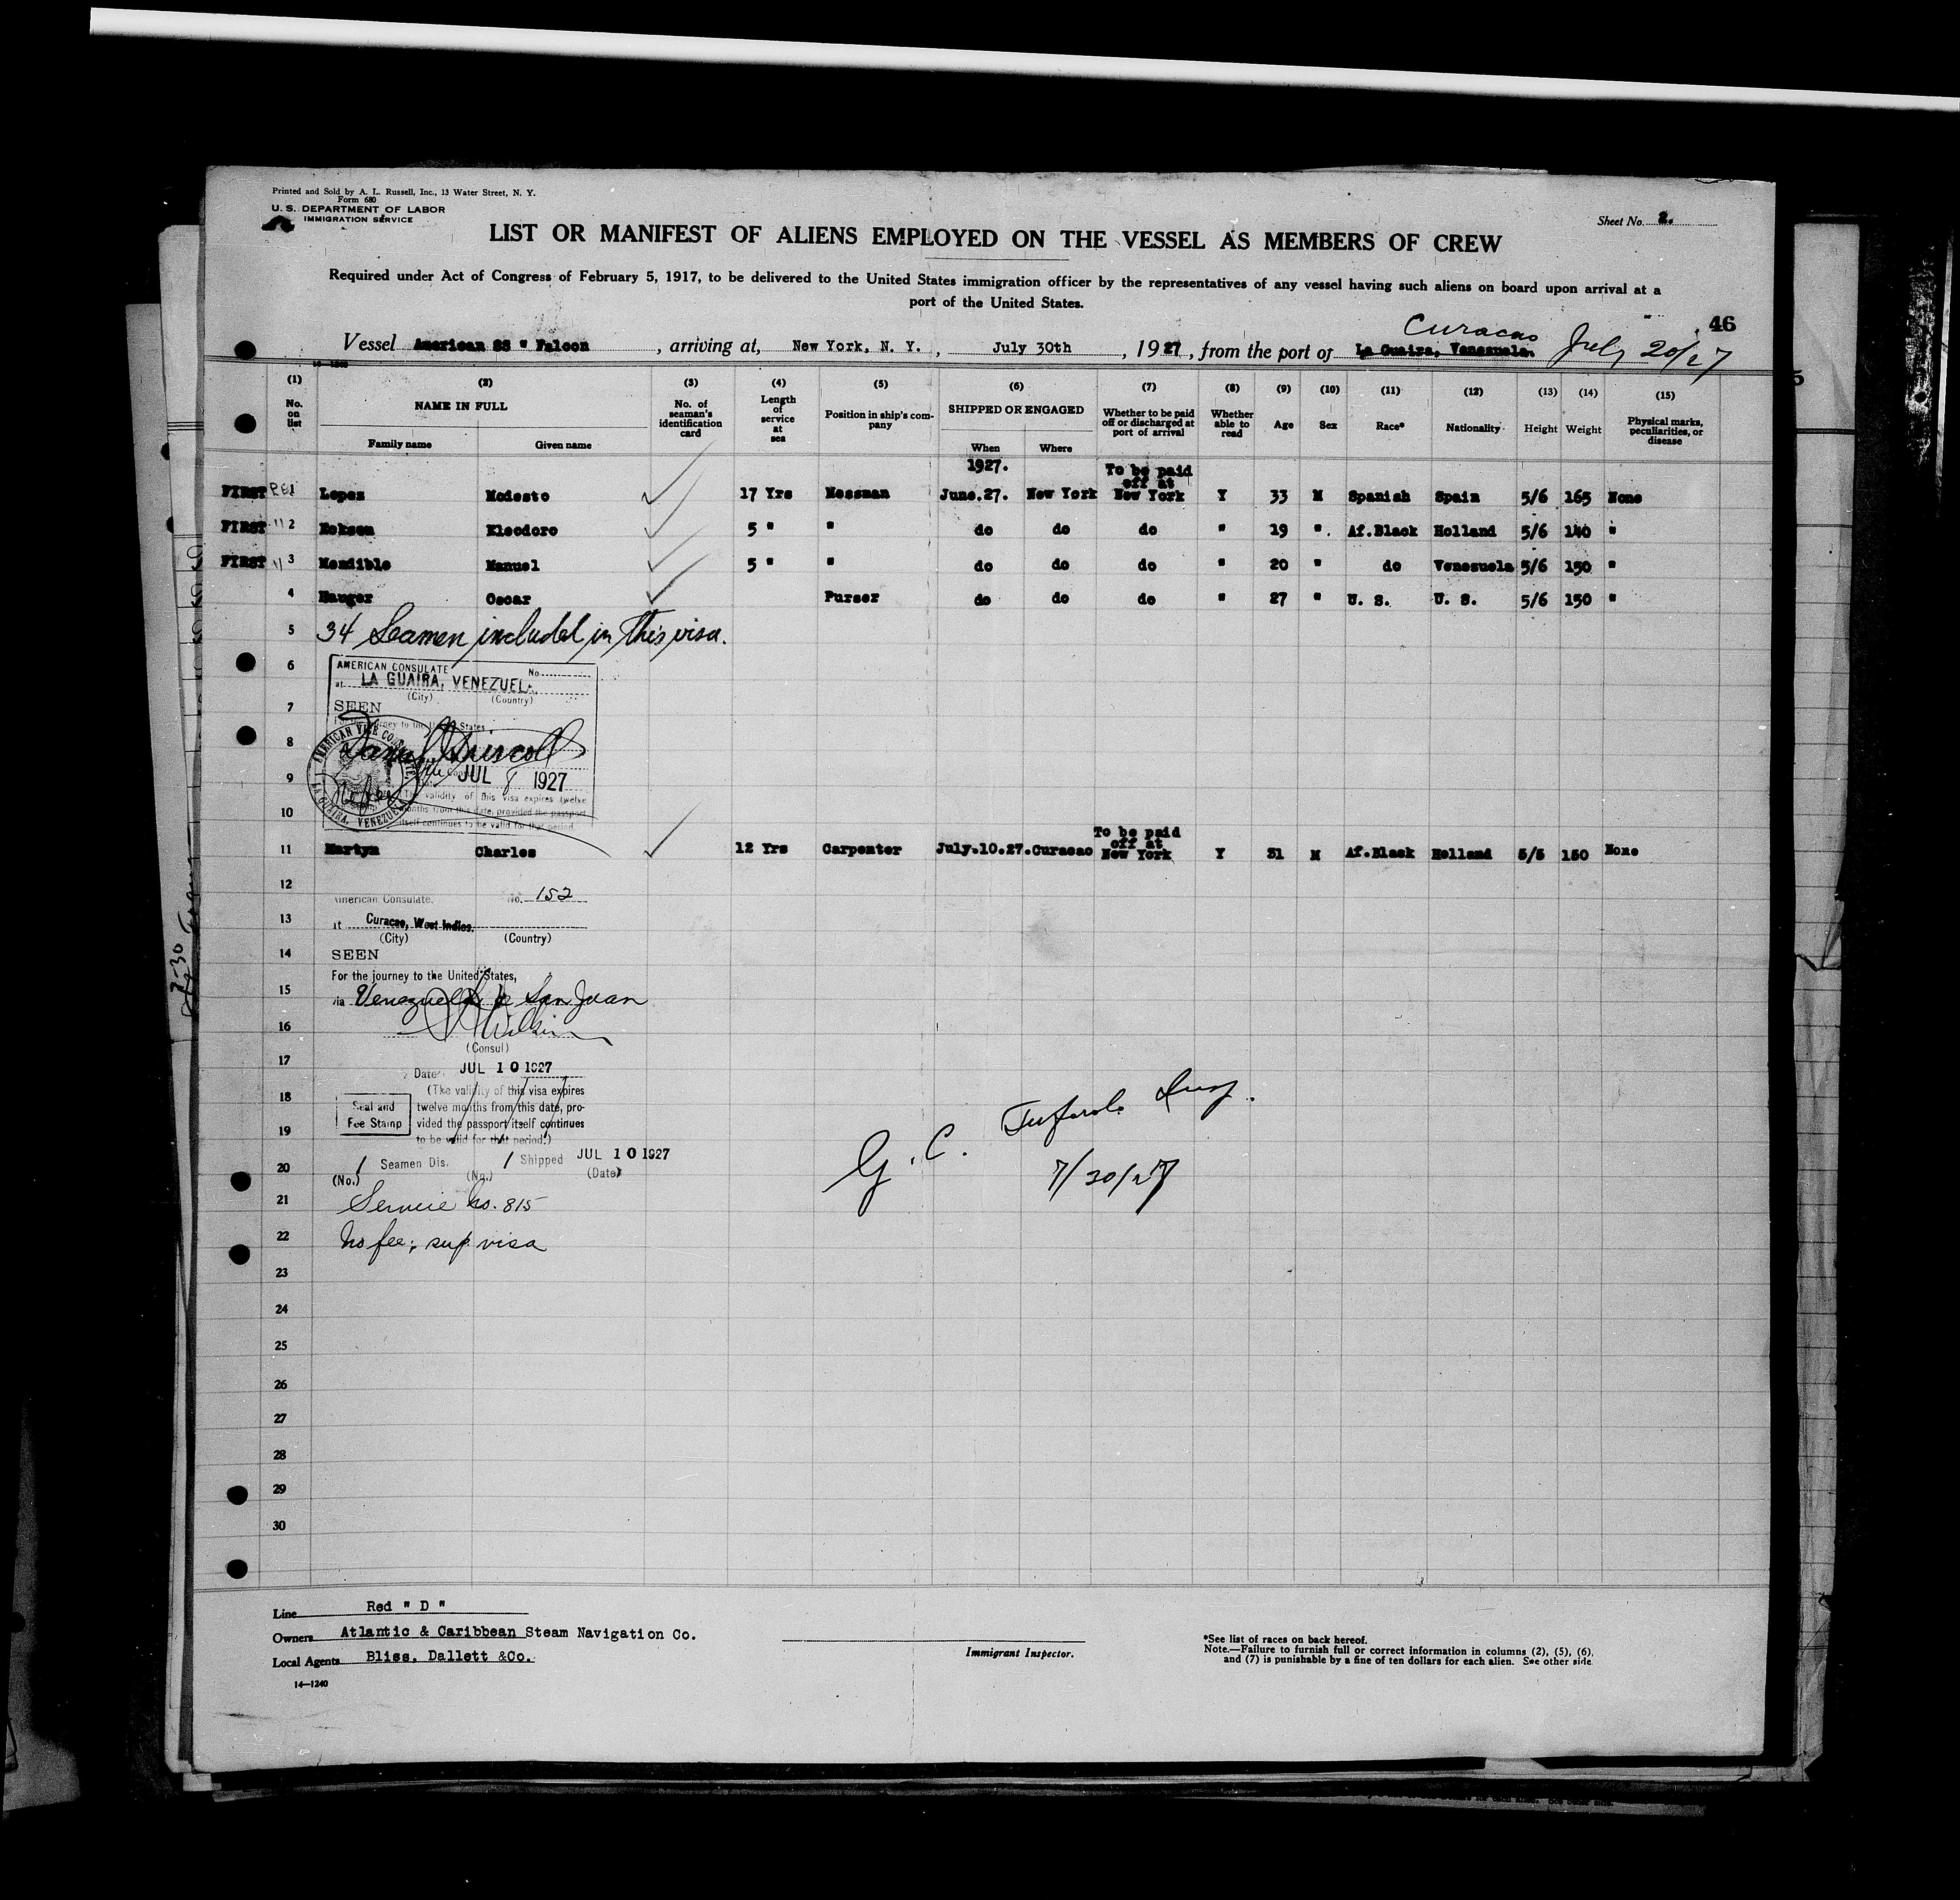 Printed and Sold by A. L. Russell, Inc., 13 Water Street, N. Y.
Form 680
U. S. DEPARTMENT OF LABOR
IMMIGRATION SERVICE
Sheet No. 2.
LIST OR MANIFEST OF ALIENS EMPLOYED ON THE VESSEL AS MEMBERS OF CREW
Required under Act of Congress of February 5, 1917, to be delivered to the United States immigration officer by the representatives of any vessel having such aliens on board upon arrival at a
port of the United States.
46
Curacao
Vessel American SS " Falcon , arriving at, New York, N. Y. , July 30th , 1927, from the port of La Guaira, Venezuela. July 20/27
(1) (2) (3) (4) (5) (6) (7) (8) (9) (10) (11) (12) (13) (14) (15)
No. on list NAME IN FULL Family name Given name No. of seaman's identification card Length of service at sea Position in ship's company SHIPPED OR ENGAGED When Where Whether to be paid off or discharged at port of arrival Whether able to read Age Sex Race* Nationality Height Weight Physical marks, peculiarities, or disease
1927. To be paid off at
FIRST 1 Lopez Modesto 17 Yrs Messman June.27. New York New York Y 33 M Spanish Spain 5/6 165 None
FIRST " 2 Eleodoro 5 " " do do do " 19 " Af.Black Holland 5/6 140 "
FIRST " 3 Mendible Manuel 5 " " do do do " 20 " do Venezuela 5/6 150 "
4 Hauger Oscar Purser do do do " 27 " U. S. U. S. 5/6 150 "
5 34 Seamen included in this visa.
6 AMERICAN CONSULATE No.
at LA GUAIRA, VENEZUELA
(City) (Country)
7 SEEN
For the journey to the United States,
8 Driscoll
AMERICAN VICE CONSULATE, LA GUAIRA, VENEZUELA
9 JUL 8 1927
The validity of this visa expires twelve
10 months from this date, provided the passport
itself continues to be valid for that period
To be paid off at
11 Martyn Charles 12 Yrs Carpenter July.10.27. Curacao New York Y 31 M Af.Black Holland 5/5 150 None
12 American Consulate, No. 152
13 at Curacao, West Indies.
(City) (Country)
14 SEEN
For the journey to the United States,
15 via Venezuela & San Juan
16
(Consul)
17 Date JUL 10 1927
(The validity of this visa expires
18 Seal and twelve months from this date, pro-
Fee Stamp vided the passport itself continues
19 to be valid for that period.)
20 1 Seamen Dis. 1 Shipped JUL 10 1927
(No.) (No.) (Date)
21 Service No. 815
22 No fee; sup. visa
G. C.
Insp.
7/30/27
23
24
25
26
27
28
29
30
Line Red " D "
Owners Atlantic & Caribbean Steam Navigation Co.
Local Agents Bliss, Dallett &Co.
14—1240
Immigrant Inspector.
*See list of races on back hereof.
Note.—Failure to furnish full or correct information in columns (2), (5), (6),
and (7) is punishable by a fine of ten dollars for each alien. See other side.